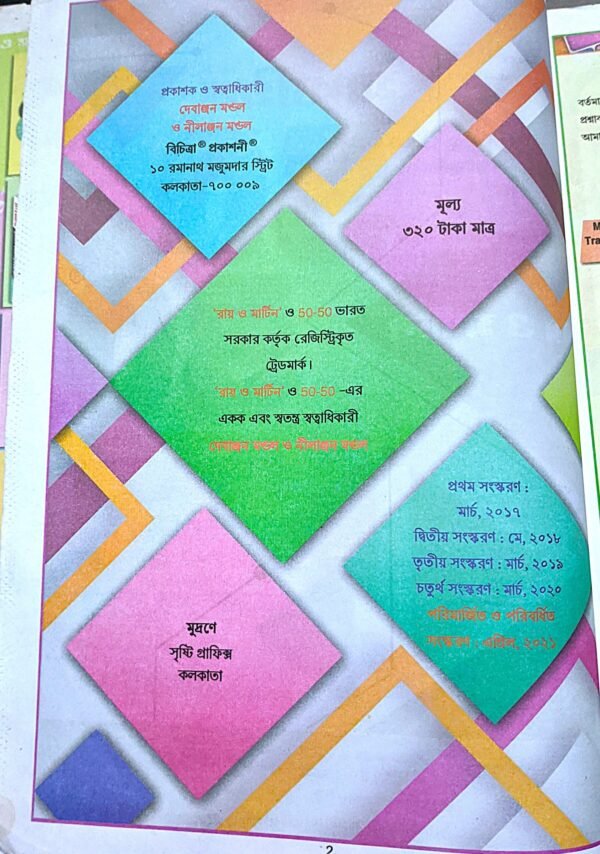 প্রকাশক ও স্বত্বাধিকারী
দেবাঞ্জন মণ্ডল
ও নীলাঞ্জন মণ্ডল
বিচিত্রা® প্রকাশনী®
১০ রমানাথ মজুমদার স্ট্রিট
কলকাতা-৭০০ ০০৯
মূল্য
৩২০ টাকা মাত্র
'রায় ও মার্টিন' ও 50-50 ভারত
সরকার কর্তৃক রেজিস্ট্রিকৃত
ট্রেডমার্ক।
'রায় ও মার্টিন' ও 50-50 -এর
একক এবং স্বতন্ত্র স্বত্বাধিকারী
দেবাঞ্জন মণ্ডল ও নীলাঞ্জন মণ্ডল
প্রথম সংস্করণ :
মার্চ, ২০১৭
দ্বিতীয় সংস্করণ : মে, ২০১৮
তৃতীয় সংস্করণ : মার্চ, ২০১৯
চতুর্থ সংস্করণ : মার্চ, ২০২০
পরিমার্জিত ও পরিবর্ধিত
সংস্করণ : এপ্রিল, ২০২১
মুদ্রণে
সৃষ্টি গ্রাফিক্স
কলকাতা
2